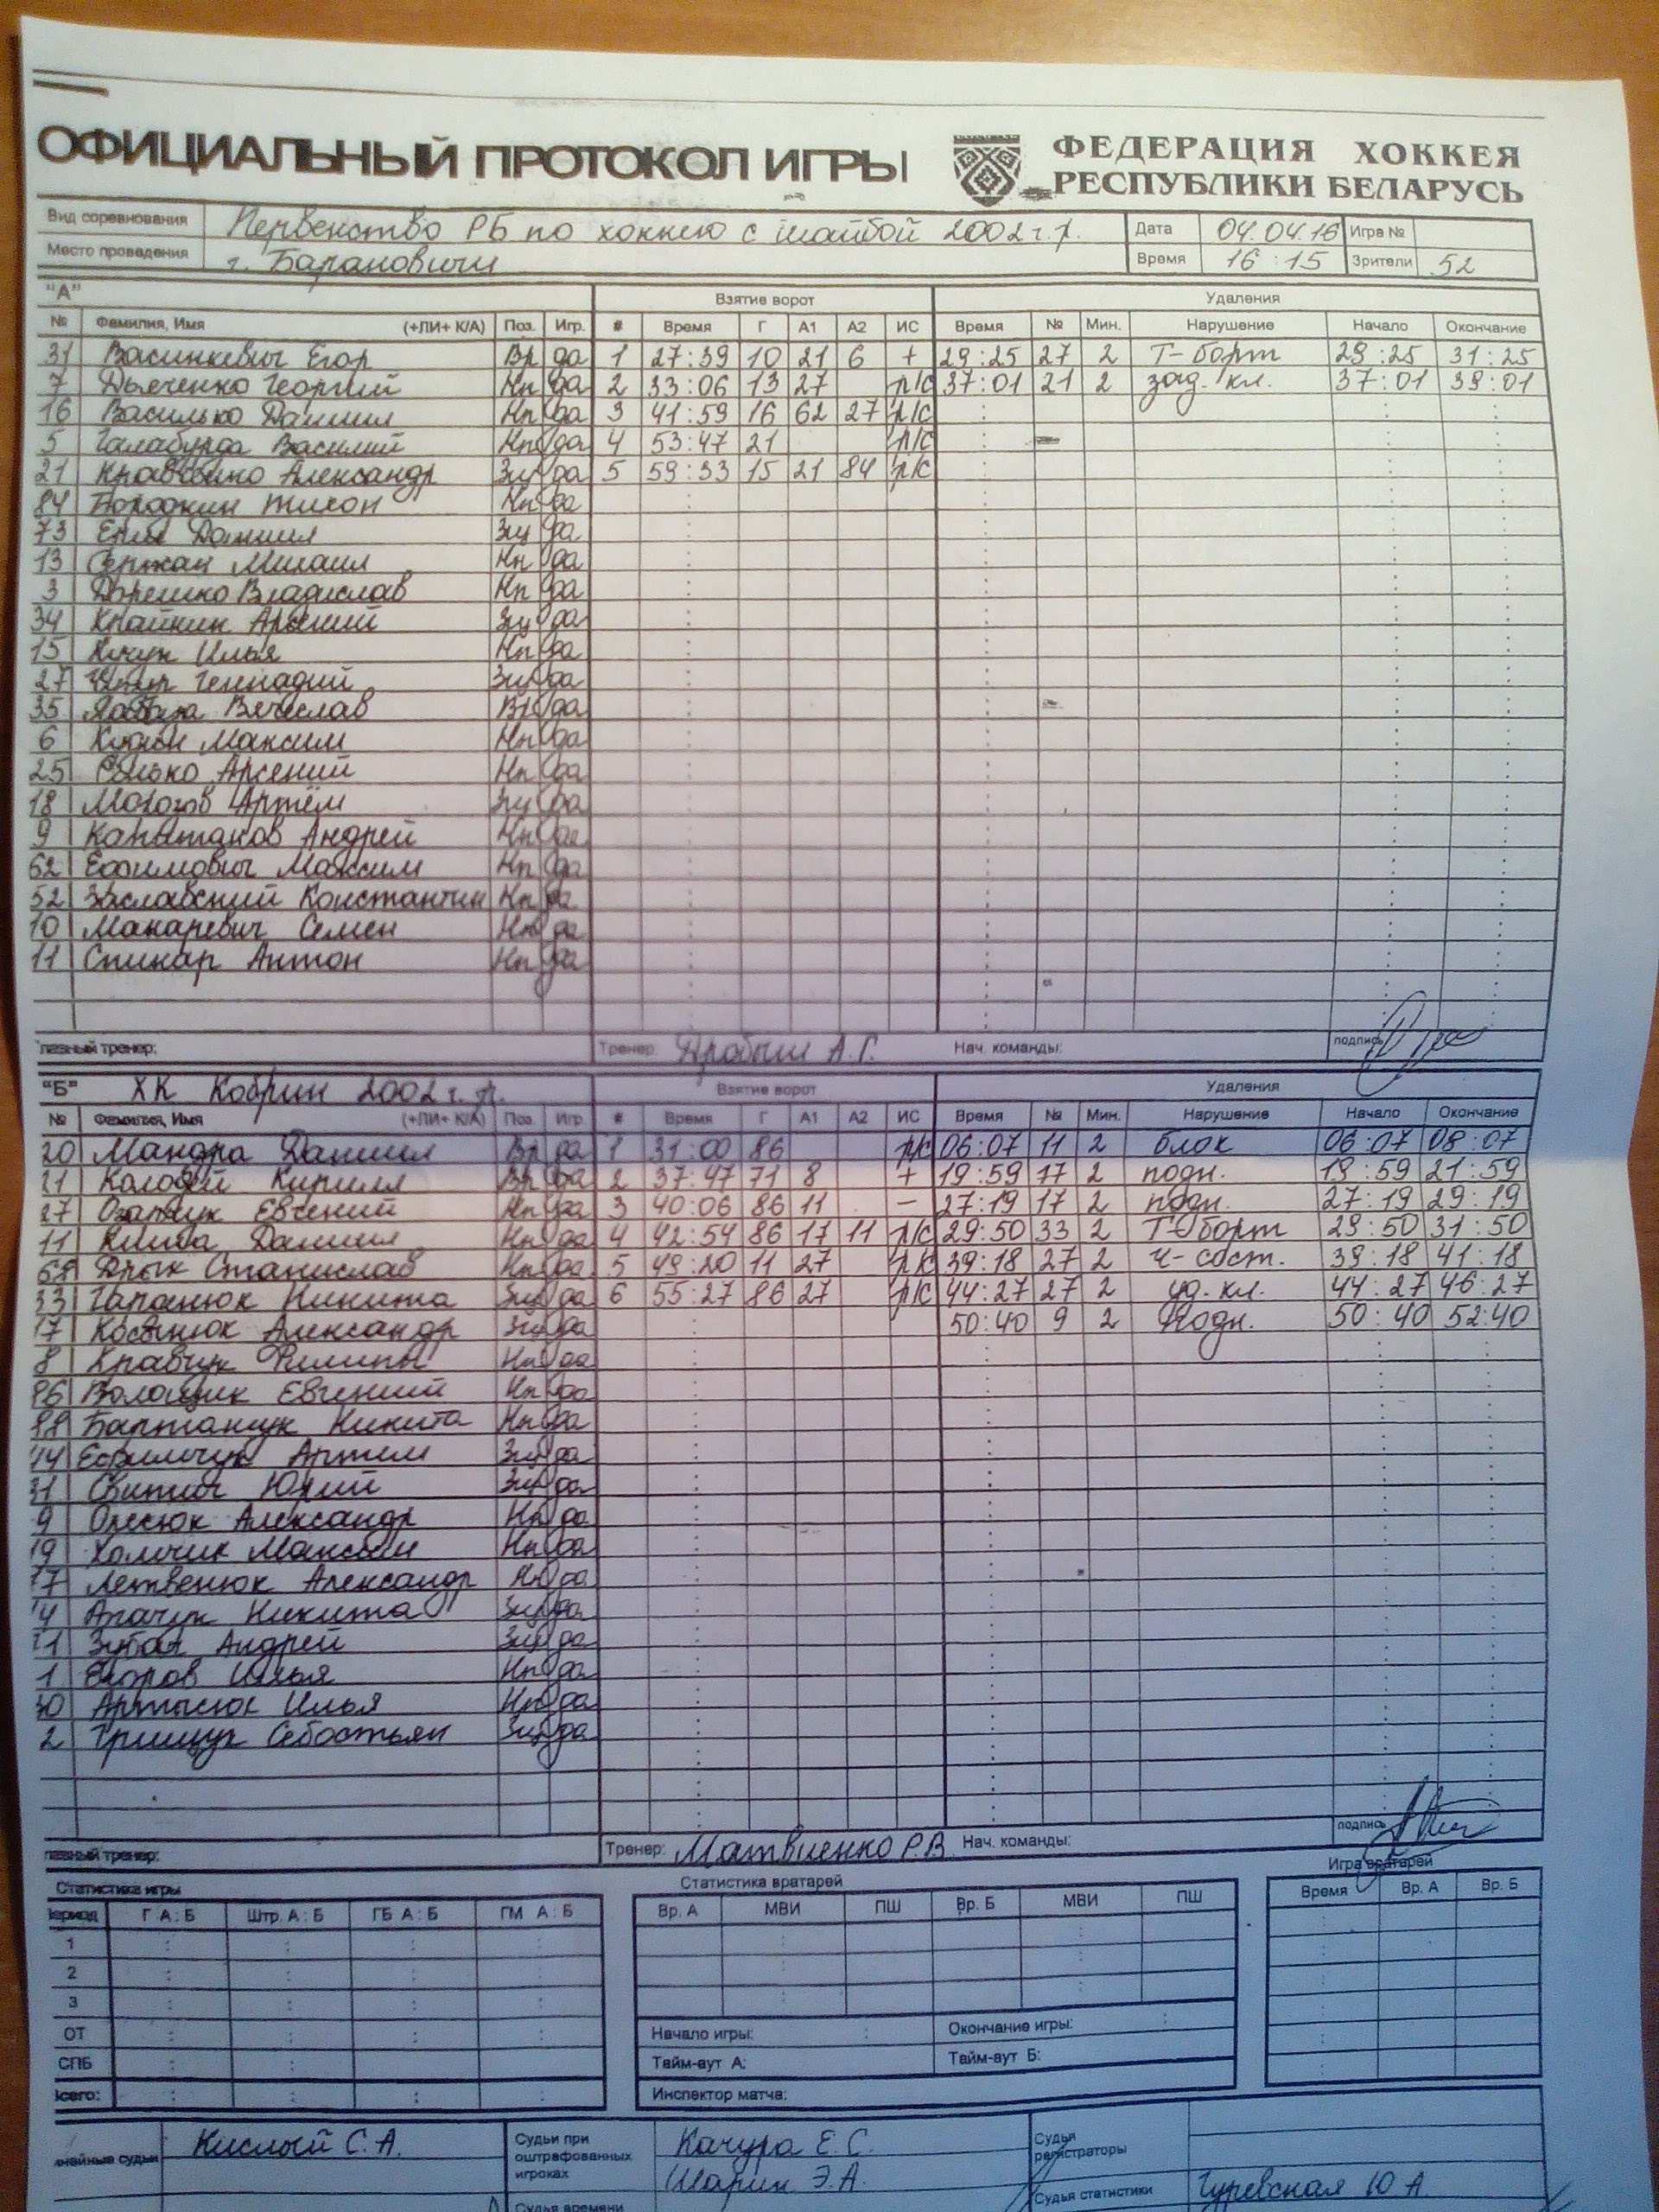 ОФИЦИАЛЬНЫЙ ПРОТОКОЛ ИГРЫ
ФЕДЕРАЦИЯ ХОККЕЯ
РЕСПУБЛИКИ БЕЛАРУСЬ
Вид соревнования Первенство РБ по хоккею с шайбой 2002 г.р. Дата 04.04.16 Игра №
Место проведения г. Барановичи Время 16:15 Зрители 52
"А" Взятие ворот Удаления
№ Фамилия, Имя (+ЛИ+ К/А) Поз. Игр. # Время Г А1 А2 ИС Время № Мин. Нарушение Начало Окончание
31 Васинкевич Егор Вр да 1 27:39 10 21 6 + 29:25 27 2 Т-борт 29:25 31:25
7 Дьяченко Георгий Нп да 2 33:06 13 27 р/с 37:01 21 2 зад. кл. 37:01 39:01
16 Василько Даниил Нп да 3 41:59 16 62 27 р/с
5 Галабурда Василий Нп да 4 53:47 21 р/с
21 Кравченко Александр Зщ да 5 59:33 15 21 84 р/с
84 Бородкин Тихон Нп да
73 Даниил Зщ да
13 Сержан Михаил Нп да
3 Дорешко Владислав Нп да
34 Крайкин Арсений Зщ да
15 Кучук Илья Нп да
27 Геннадий Зщ да
35 Вячеслав Вр да
6 Максим Нп да
25 Арсений Нп да
18 Артём Зщ да
9 Капитанов Андрей Нп да
62 Ефимович Максим Нп да
52 Заславский Константин Нп да
10 Макаревич Семен Нп да
11 Спикар Антон Нп да
Главный тренер: Тренер: Дробыш А.Г. Нач. команды: подпись
"Б" ХК Кобрин 2002 г.р. Взятие ворот Удаления
№ Фамилия, Имя (+ЛИ+ К/А) Поз. Игр. # Время Г А1 А2 ИС Время № Мин. Нарушение Начало Окончание
20 Мандра Даниил Вр да 1 31:00 86 р/с 06:07 11 2 блок 06:07 08:07
Колодей Кирилл Вр да 2 37:47 71 8 + 19:59 77 2 подн. 19:59 21:59
27 Евгений Нп да 3 40:06 86 11 – 27:19 17 2 подн. 27:19 29:19
11 Клиба Даниил Нп да 4 42:54 86 17 11 р/с 29:50 33 2 Т-борт 29:50 31:50
68 Дрык Станислав Нп да 5 49:20 11 27 р/с 39:18 27 2 ч-сост. 39:18 41:18
33 Гапанюк Никита Зщ да 6 55:27 86 27 р/с 44:27 27 2 уд. кл. 44:27 46:27
17 Косынюк Александр Зщ да 50:40 9 2 подн. 50:40 52:40
8 Кравчук Филипп Нп да
86 Волощик Евгений Нп да
88 Бартащук Никита Нп да
Ефимчук Артем Зщ да
Свитич Юрий Зщ да
9 Олесюк Александр Нп да
19 Хомичик Максим Нп да
77 Летвенюк Александр Нп да
Апачук Никита Зщ да
Зубач Андрей Зщ да
1 Егоров Илья Нп да
Артысюк Илья Нп да
2 Грищук Себостьян Зщ да
Главный тренер: Тренер: Матвиенко Р.В. Нач. команды: подпись
Статистика игры Статистика вратарей Игра вратарей
Период Г А : Б Штр. А : Б ГБ А : Б ГМ А : Б Вр. А МВИ ПШ Вр. Б МВИ ПШ Время Вр. А Вр. Б
1
2
3
ОТ Начало игры: Окончание игры:
СПБ Тайм-аут А: Тайм-аут Б:
Всего: Инспектор матча:
Линейные судьи Кислый С.А. Судьи при оштрафованных игроках Качура Е.С. Судья регистраторы
Шарик Э.А. Судья статистики Гуревская Ю.А.
Судья времени